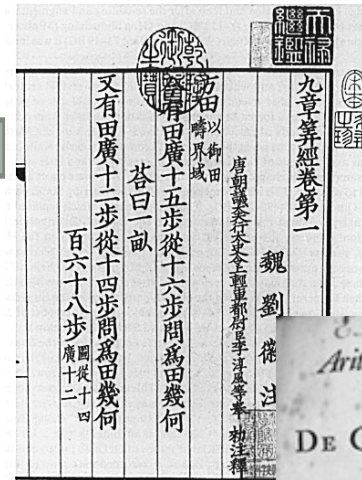 天祿繼鑑
乾隆御覽之寶
九章筭經卷第一
魏劉徽注
唐朝議大夫行太史令上輕車都尉臣李淳風等奉 勑注釋
方田 以御田疇界域
今有田廣十五步從十六步問爲田幾何
荅曰一畝
又有田廣十二步從十四步問爲田幾何
百六十八步 圖從十四廣十二
Arit
DE C